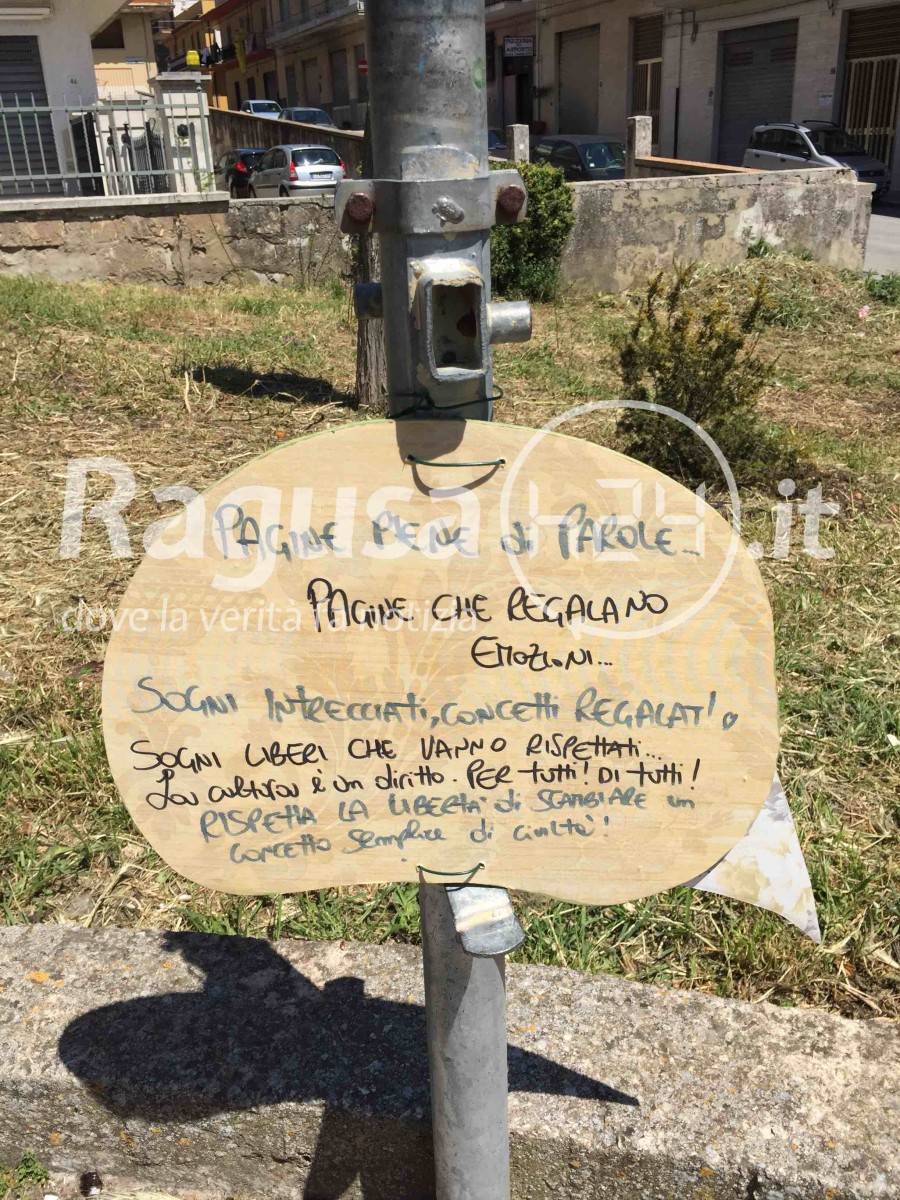 PAGINE PIENE di PAROLE...
PAGINE CHE REGALANO
EMOZIONI...
SOGNI INTRECCIATI, CONCETTI REGALATI
SOGNI LIBERI CHE VANNO RISPETTATI...
La cultura è un diritto. PER tutti! DI tutti!
RISPETTA LA LIBERTÀ di SCAMBIARE un
concetto semplice di civiltà!
Ragusa H24.it
dove la verità fa notizia